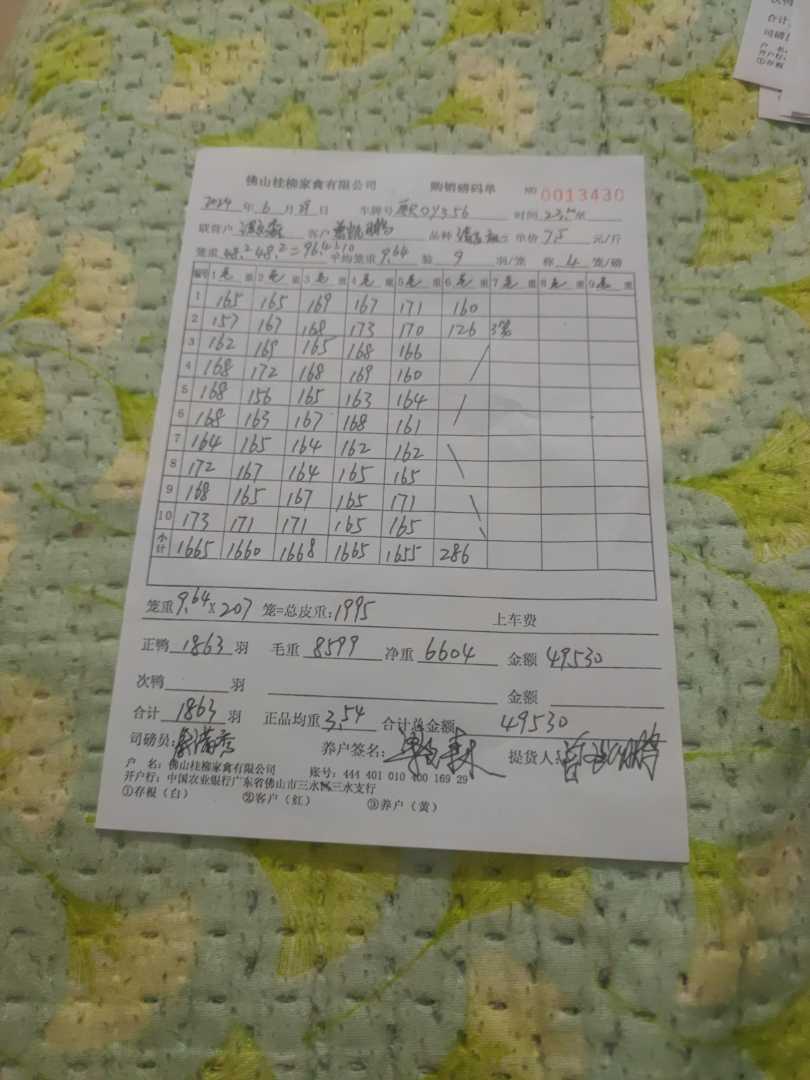 次鸭
合计
司磅
户 名:
开户行:
①存根
佛山桂柳家禽有限公司 购销磅码单 NO 0013430
2024 年 6 月 29 日 车牌号 0Y356 时间
联营户 客户 品种 单价 7.5 元/斤
笼重 48.2 48.2=96.4÷10 平均笼重 9.64 验 9 羽/笼 称 4 笼/磅
编号 1 毛 重 2 毛 重 3 毛 重 4 毛 重 5 毛 重 6 毛 重 7 毛 重 8 毛 重 9 毛 重
1 165 165 169 167 171 160
2 157 167 168 173 170 126 3笼
3 162 169 165 168 166
4 168 172 168 169 160
5 168 156 165 163 164
6 168 163 167 168 161
7 164 165 164 162 162
8 172 167 164 165 165
9 168 165 167 165 171
10 173 171 171 165 165
小计 1665 1660 1668 1665 1655 286
笼重 9.64 X 207 笼=总皮重: 1995 上车费
正鸭 1863 羽 毛重 8599 净重 6604 金额 49530
次鸭 羽 金额
合计 1863 羽 正品均重 3.54 合计总金额 49530
司磅员: 养户签名: 提货人:
户 名: 佛山桂柳家禽有限公司 账号: 444 401 010 400 169 29
开户行: 中国农业银行广东省佛山市三水区三水支行
①存根(白) ②客户(红) ③养户(黄)